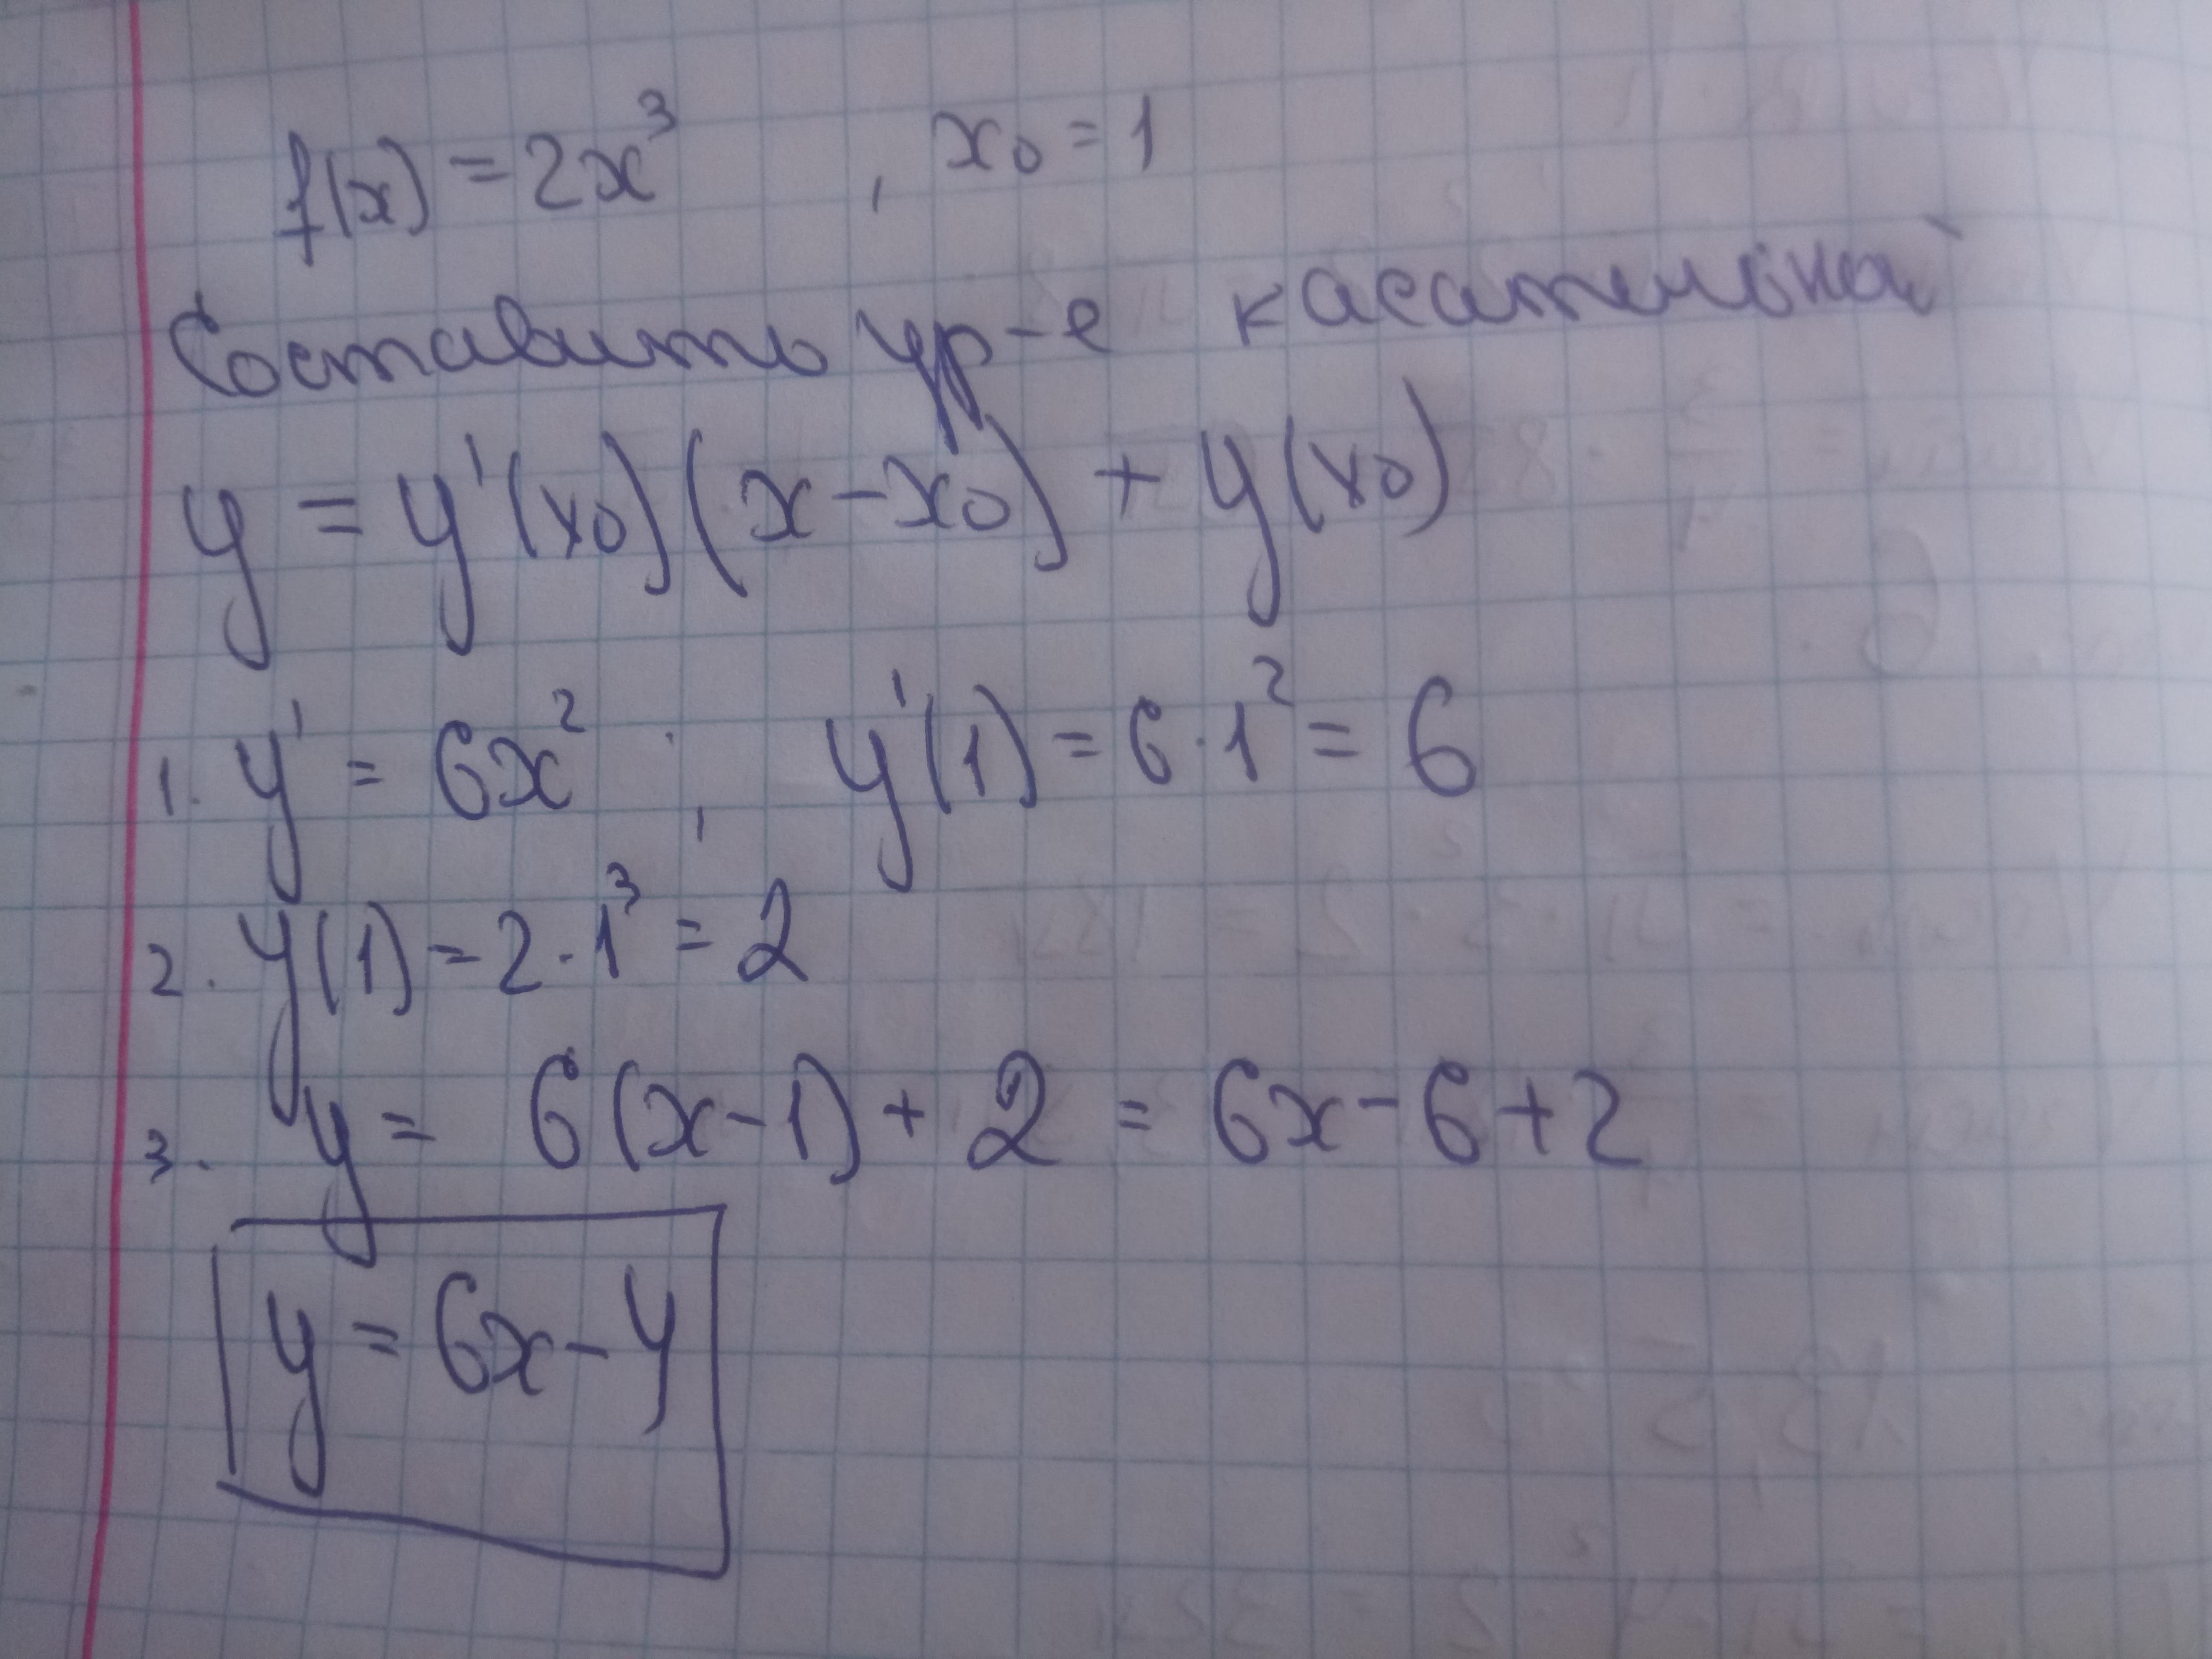 f(x) = 2x³ , x₀ = 1
Составить ур-е касательной
y = y'(x₀)(x - x₀) + y(x₀)
1. y' = 6x² ; y'(1) = 6·1² = 6
2. y(1) = 2·1³ = 2
3. y = 6(x-1) + 2 = 6x - 6 + 2
y = 6x - 4